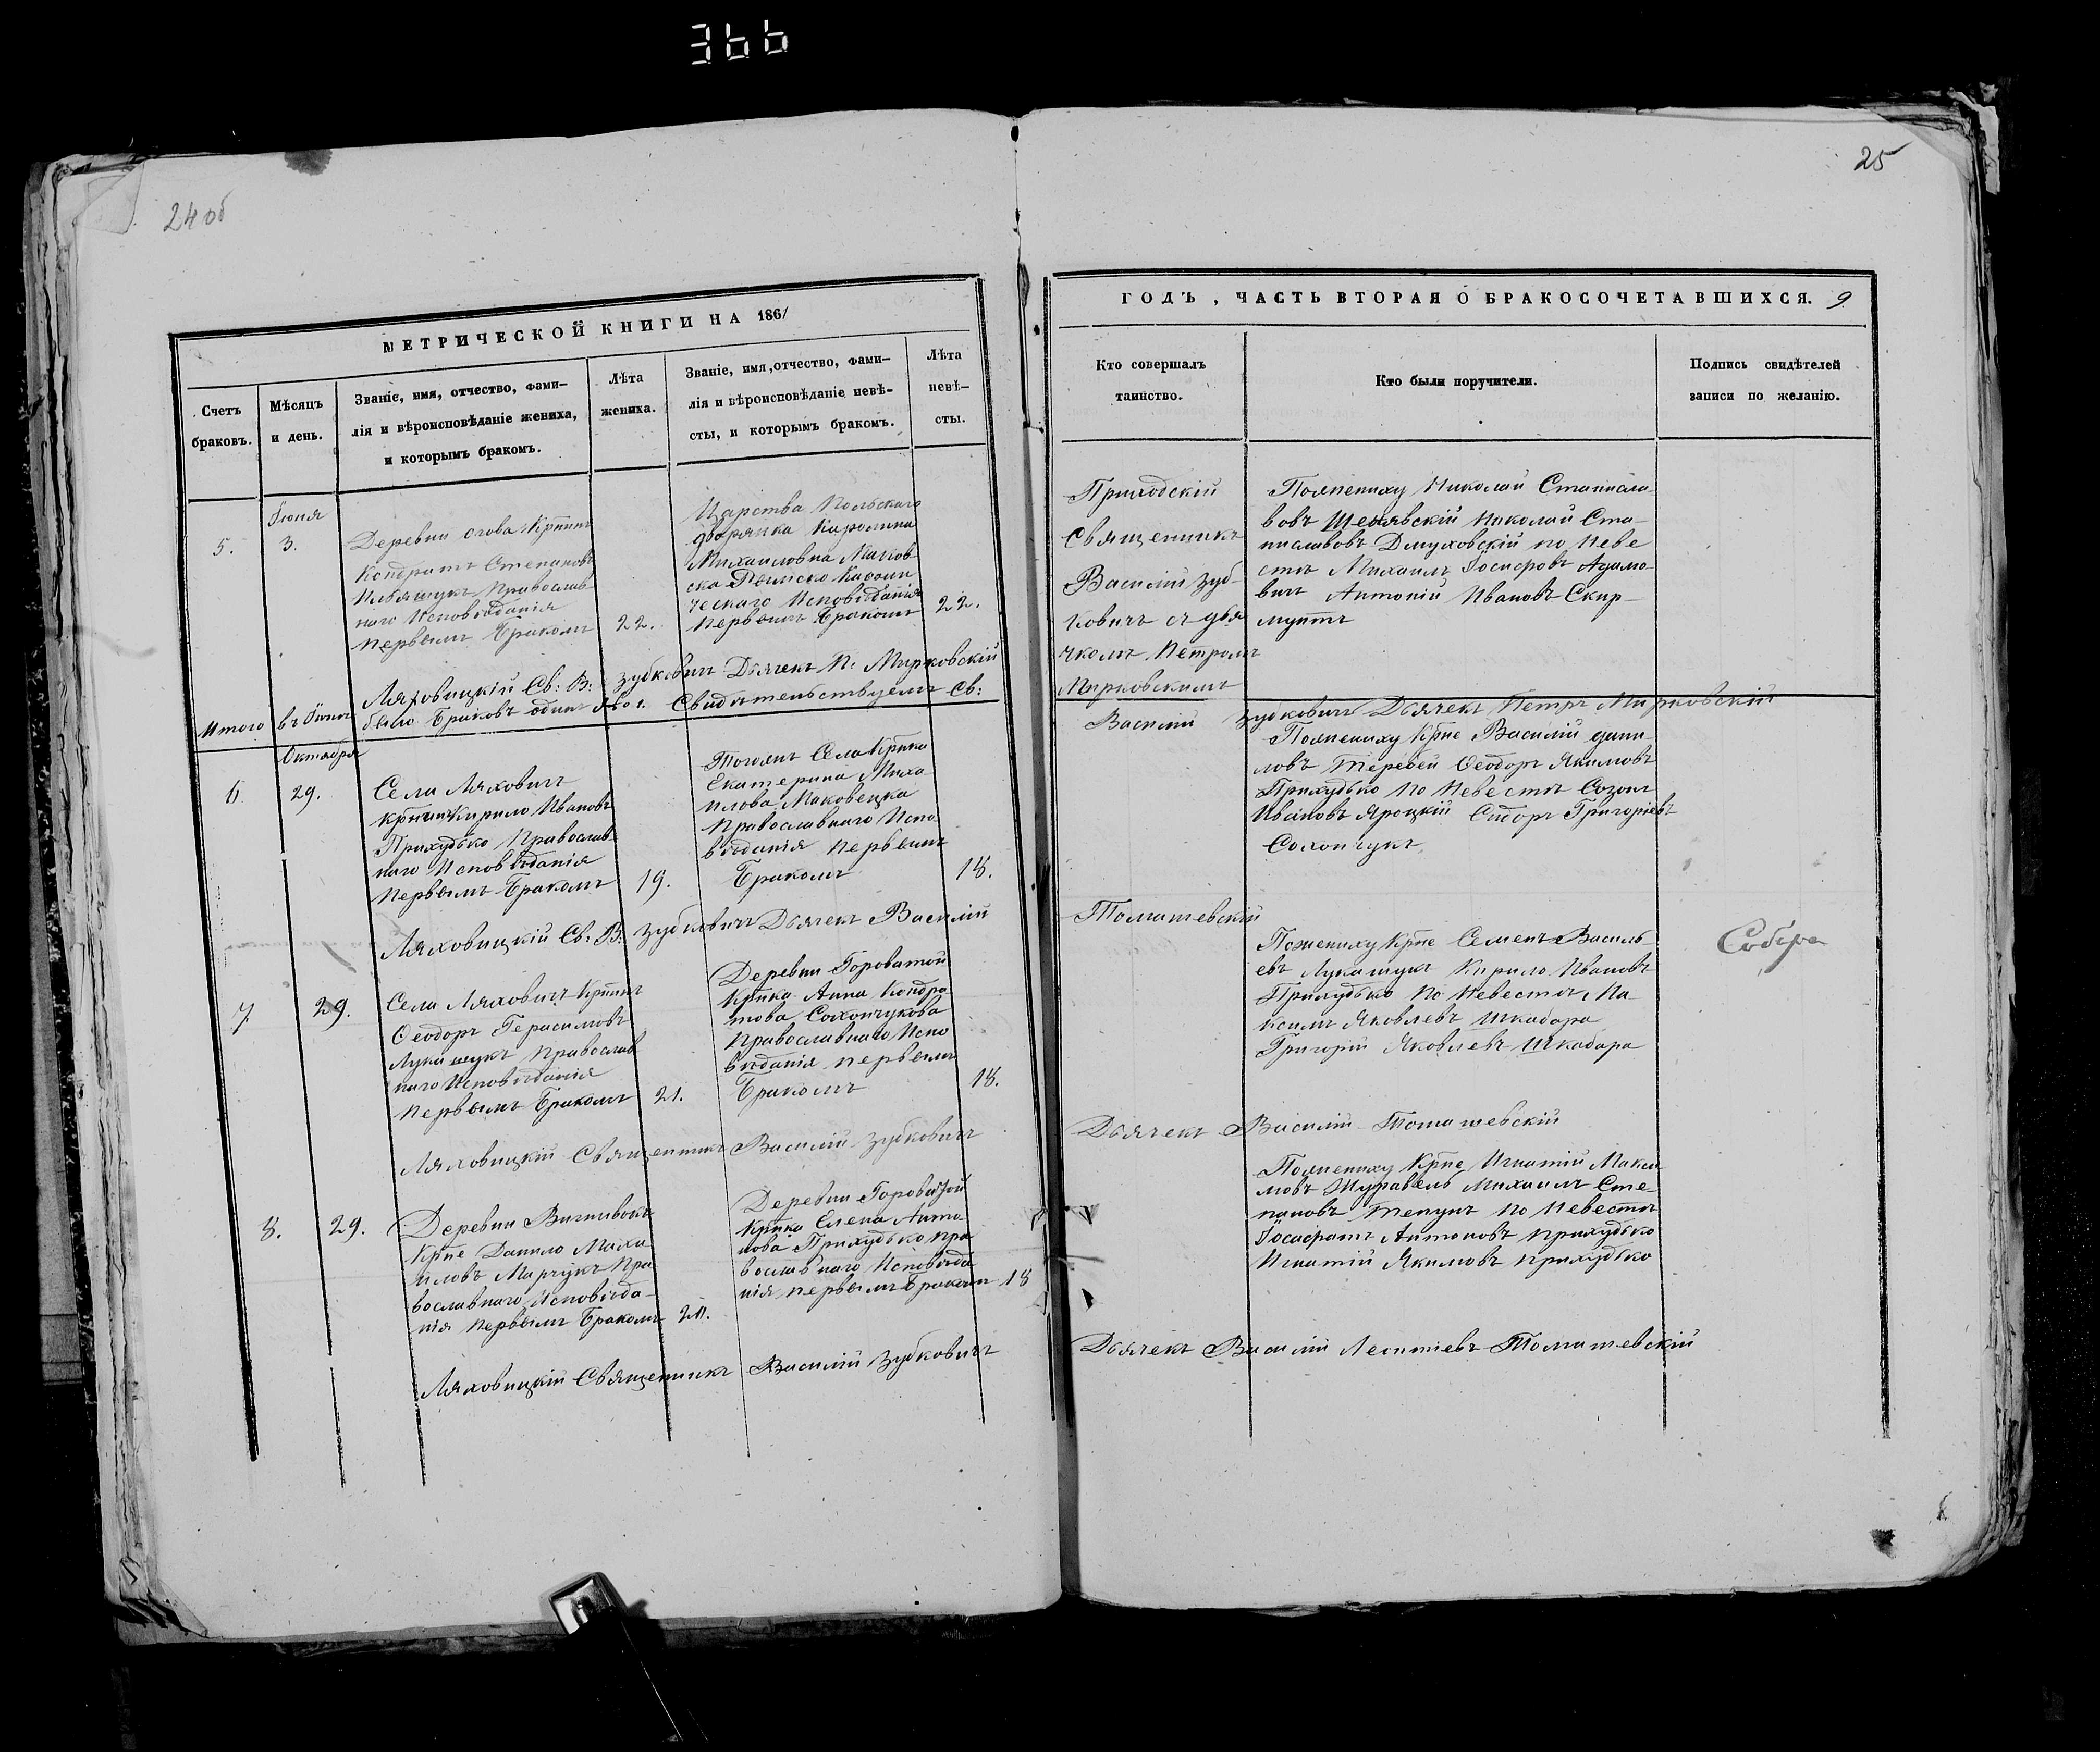 366
24 об
25
МЕТРИЧЕСКОЙ КНИГИ НА 1861
ГОДЪ, ЧАСТЬ ВТОРАЯ О БРАКОСОЧЕТАВШИХСЯ. 9.
Счетъ
браковъ.
Мѣсяцъ
и день.
Званіе, имя, отчество, фами–
лія и вѣроисповѣданіе жениха,
и которымъ бракомъ.
Лѣта
жениха.
Званіе, имя, отчество, фами–
лія и вѣроисповѣданіе невѣ–
сты, и которымъ бракомъ.
Лѣта
невѣ–
сты.
Кто совершалъ
таинство.
Кто были поручители.
Подпись свидѣтелей
записи по желанію.
5.
Іюня
3.
Деревни Крпинъ
Кондратъ Степановъ
Православ-
наго Исповѣданія
первымъ Бракомъ
22.
Царства Польскаго
дворянка Каролина
Михайловна Маков
ска Римско Католи
ческаго Исповѣданія
первымъ Бракомъ
22.
Приходскій
Священникъ
Василій Зуб-
ковичъ съ дья
чкомъ Петромъ
Мирковскимъ
Пожениху Николай Станисла-
вовъ Николай Ста-
ниславовъ Дмуховскій по Неве
стѣ Михаилъ Іосифовъ Адамо-
вичъ Антоній Ивановъ Скир-
мунтъ
Ляховицкій Св: В: Зубковичъ Дьячекъ П. Мирковскій
Итого въ Іюнѣ было Браковъ одинъ Свидѣтельствуемъ Св:
Василій Зубковичъ Дьячекъ Петръ Мирковскій
6
Октября
29.
Села Ляховичъ
крпинъ Кирило Ивановъ
Прихудько Православ-
наго Исповѣданія
Первымъ Бракомъ
19.
Тогожъ Села Крпика
Екатерина Миха
илова Маковецка
Православнаго Испо
вѣданія первымъ
Бракомъ
18.
Пожениху Крпне Василій дани-
ловъ Теребей Ѳеодоръ Якимовъ
Прихудько По Невестѣ Созонъ
Ивановъ Яроцкій Сидоръ Григоріевъ
Сохончукъ
Ляховицкій Св: В: Зубковичъ Дьячекъ Василій
Томашевскій
7
29.
Села Ляховичъ Крпинъ
Ѳеодоръ Герасимовъ
Лукашукъ Православ
наго Исповѣданія
Первымъ Бракомъ
21.
Деревни Гороватой
Крпика Анна Кондра
това Сохончукова
Православнаго Испо
вѣданія первымъ
Бракомъ
18.
Пожениху Крпне Семенъ Василь-
евъ Лукашукъ Кирило Ивановъ
Прихудько По Невестѣ Ма
ксимъ Яковлевъ Шкабара
Григорій Яковлевъ Шкабара
Ляховицкій Священникъ Василій Зубковичъ
Дьячекъ Василій Томашевскій
8.
29.
Деревни
Крпне Данило Миха
иловъ Марчукъ Пра
вославнаго Исповѣда-
нія Первымъ Бракомъ
Деревни Гороватой
Крпика Елена Анто-
нова Прихудько пра
вославнаго Исповѣда
нія первымъ Бракомъ
18
Пожениху Крпне Игнатій Макси
мовъ Журавель Михаилъ Сте-
пановъ По Невестѣ
Іосафатъ Антоновъ прихудько
Игнатій Якимовъ прихудько
Ляховицкій Священникъ Василій Зубковичъ
Дьячекъ Василій Леонтіевъ Томашевскій